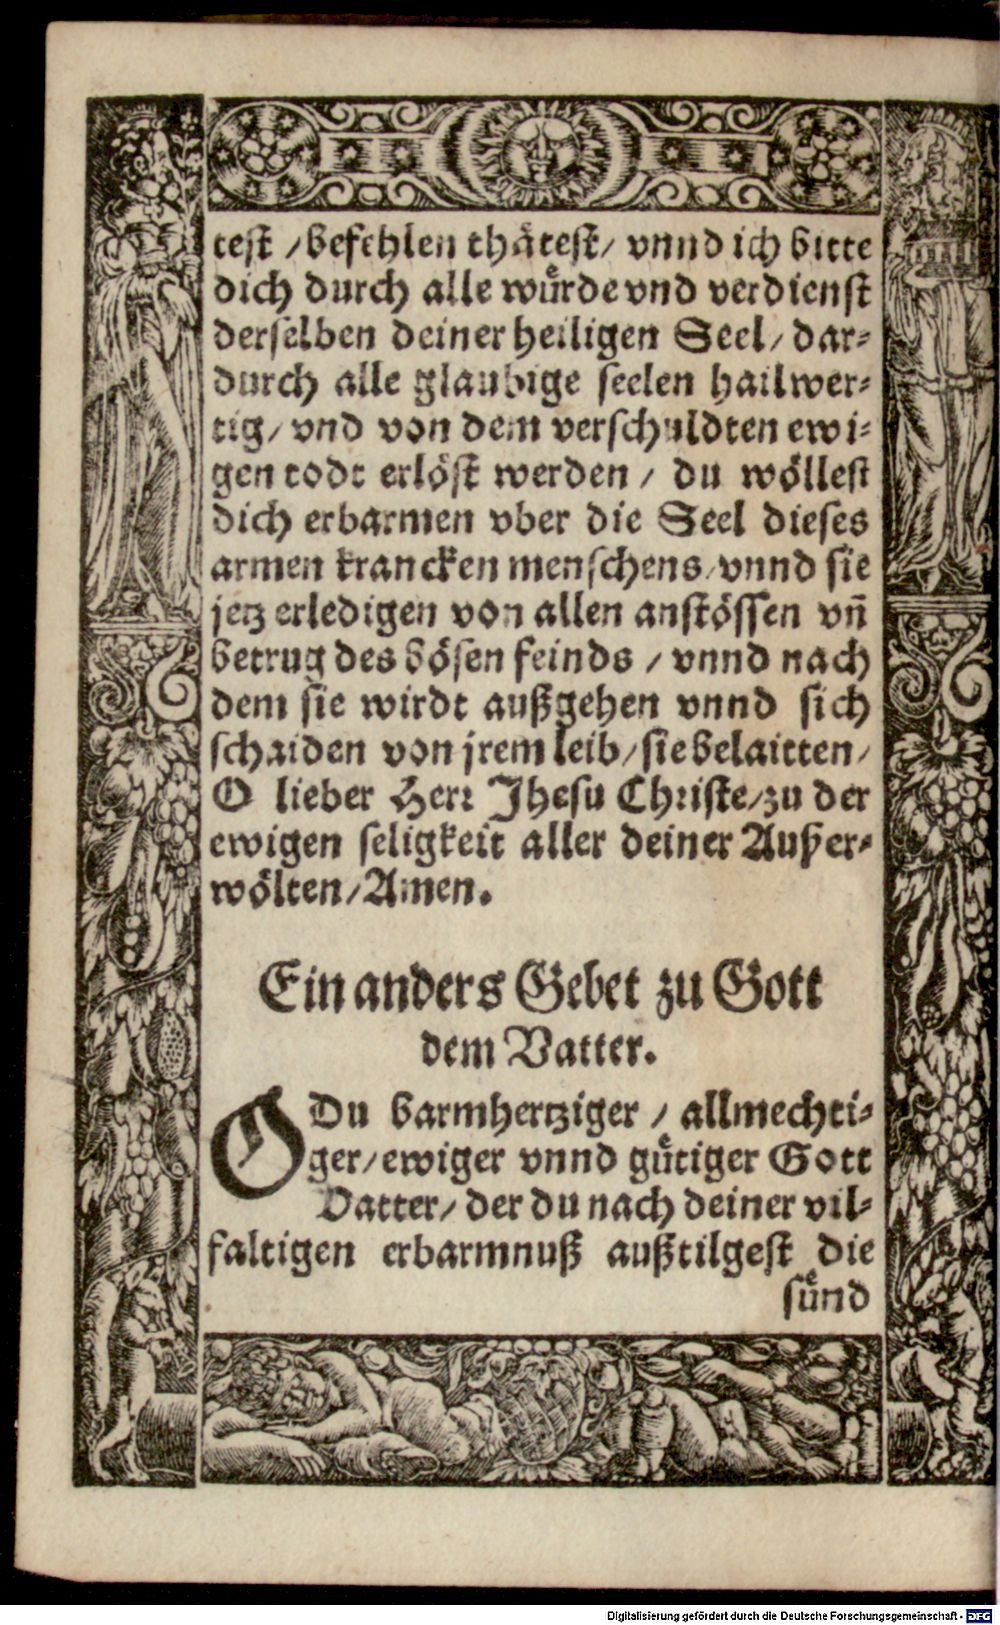 test / befehlen thåtest / vnnd ich bitte
dich durch alle wůrde vnd verdienst
derselben deiner heiligen Seel / dar-
durch alle glaubige seelen hailwer-
tig / vnd von dem verschuldten ewi-
gen todt erlöst werden / du wöllest
dich erbarmen vber die Seel dieses
armen krancken menschens / vnnd sie
jetz erledigen von allen anstössen vñ
betrug des bösen feinds / vnnd nach
dem sie wirdt außgehen vnnd sich
schaiden von jrem leib / sie belaitten /
O lieber Herr Jhesu Christe / zu der
ewigen seligkeit aller deiner Außer-
wölten / Amen.
Ein anders Gebet zu Gott
dem Vatter.
O Du barmhertziger / allmechti-
ger / ewiger vnnd gůtiger Gott
Vatter / der du nach deiner vil-
faltigen erbarmnuß außtilgest die
sůnd
Digitalisierung gefördert durch die Deutsche Forschungsgemeinschaft - DFG